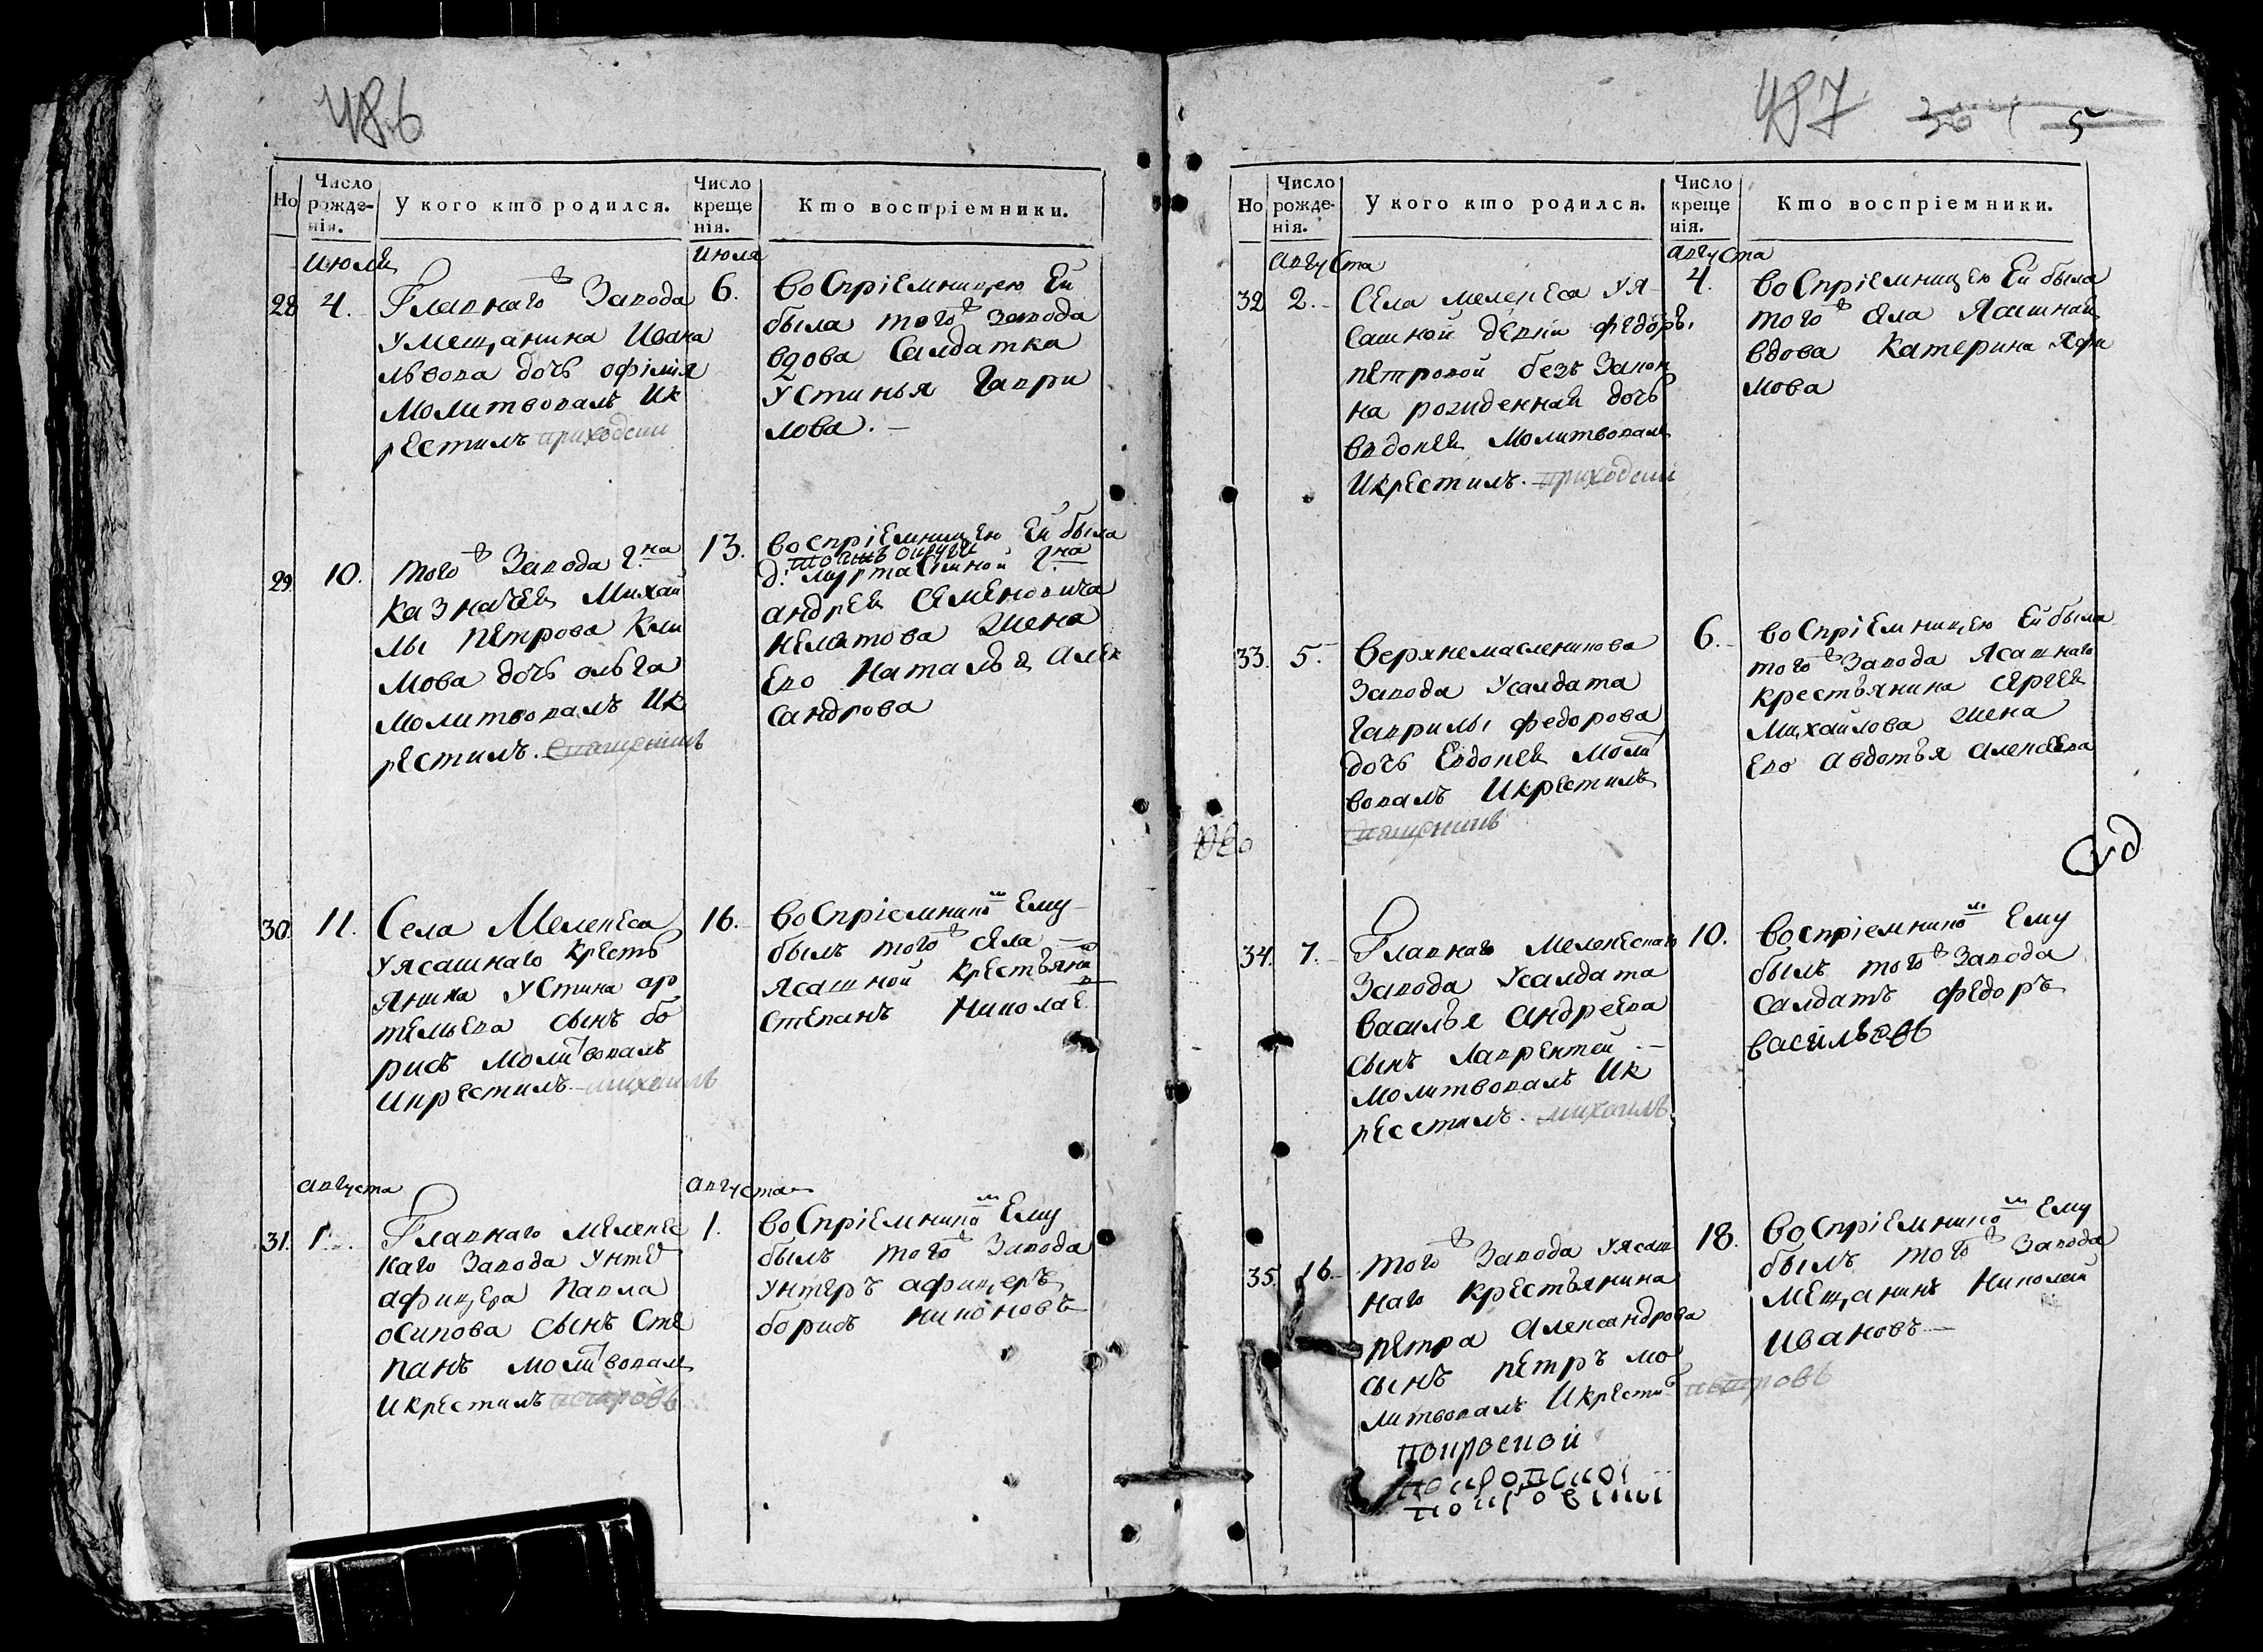 486
Но
Число рожде- нія.
У кого кто родился.
Число креще нія.
Кто воспріемники.
Июля
Июля
28
4.
Главнаго Завода
умещанина Ивана
львова дочь офімія
Молитвовалъ Ик
рестилъ
6.
воспріемницею Ей
была того Завода
вдова Салдатка
Устинья Гаври
лова.
29
10.
того Завода г.на
Казначея Михай
лы Петрова Кли
мова дочь ольга
молитвовалъ Ик
рестилъ.
13.
воспріемницею Ей была
андрея Семеновича
жена
Ево Наталья Алек
сандрова
30.
11.
Села Мелекеса
уясашнаго кресть
янина Устина ар
темьева сынъ бо
рисъ молитвовалъ
Икрестилъ
16.
воспріемником Ему
былъ того села
ясашной крестьяни
степанъ Николае
августа
августа
31.
1.
Главнаго мелекес
каго Завода Унте
афицера Павла
осипова сынъ Сте
панъ молитвовалъ
Икрестилъ петровъ
1.
воспріемником Ему
былъ того Завода
унтеръ афицеръ
борисъ никоновъ
487
5
Но
Число рожде- нія.
У кого кто родился.
Число креще нія.
Кто воспріемники.
августа
августа
32
2.
Села мелекеса уя
сашной девки федорѣ
петровой безъ Закон
на рожденная дочь
Евдокея Молитвовалъ
Икрестилъ.
4.
воспріемницею Ей была
того села Ясашная
вдова Катерина Яфи
мова
33.
5.
верхнемасленикова
Завода усалдата
гаврилы федорова
дочь Евдокея Молит
вовалъ Икрестилъ
6.
воспріемницею Ей была
того Завода Ясашнаго
крестьянина сергея
Михайлова жена
Ево авдотья алексеева
34.
7.
Главнаго мелекескаго
Завода усалдата
василья андреева
сынъ лаврентей
молитвовалъ Ик
рестилъ. михаилъ
10.
воспріемником Ему
былъ того Завода
салдатъ федоръ
васильевъ
35.
16.
того Завода уясаш
наго крестьянина
петра Александрова
сынъ петръ мо
литвовалъ Икрести петровъ
18.
воспріемником Ему
былъ того Завода
мещанинъ Николай
Ивановъ